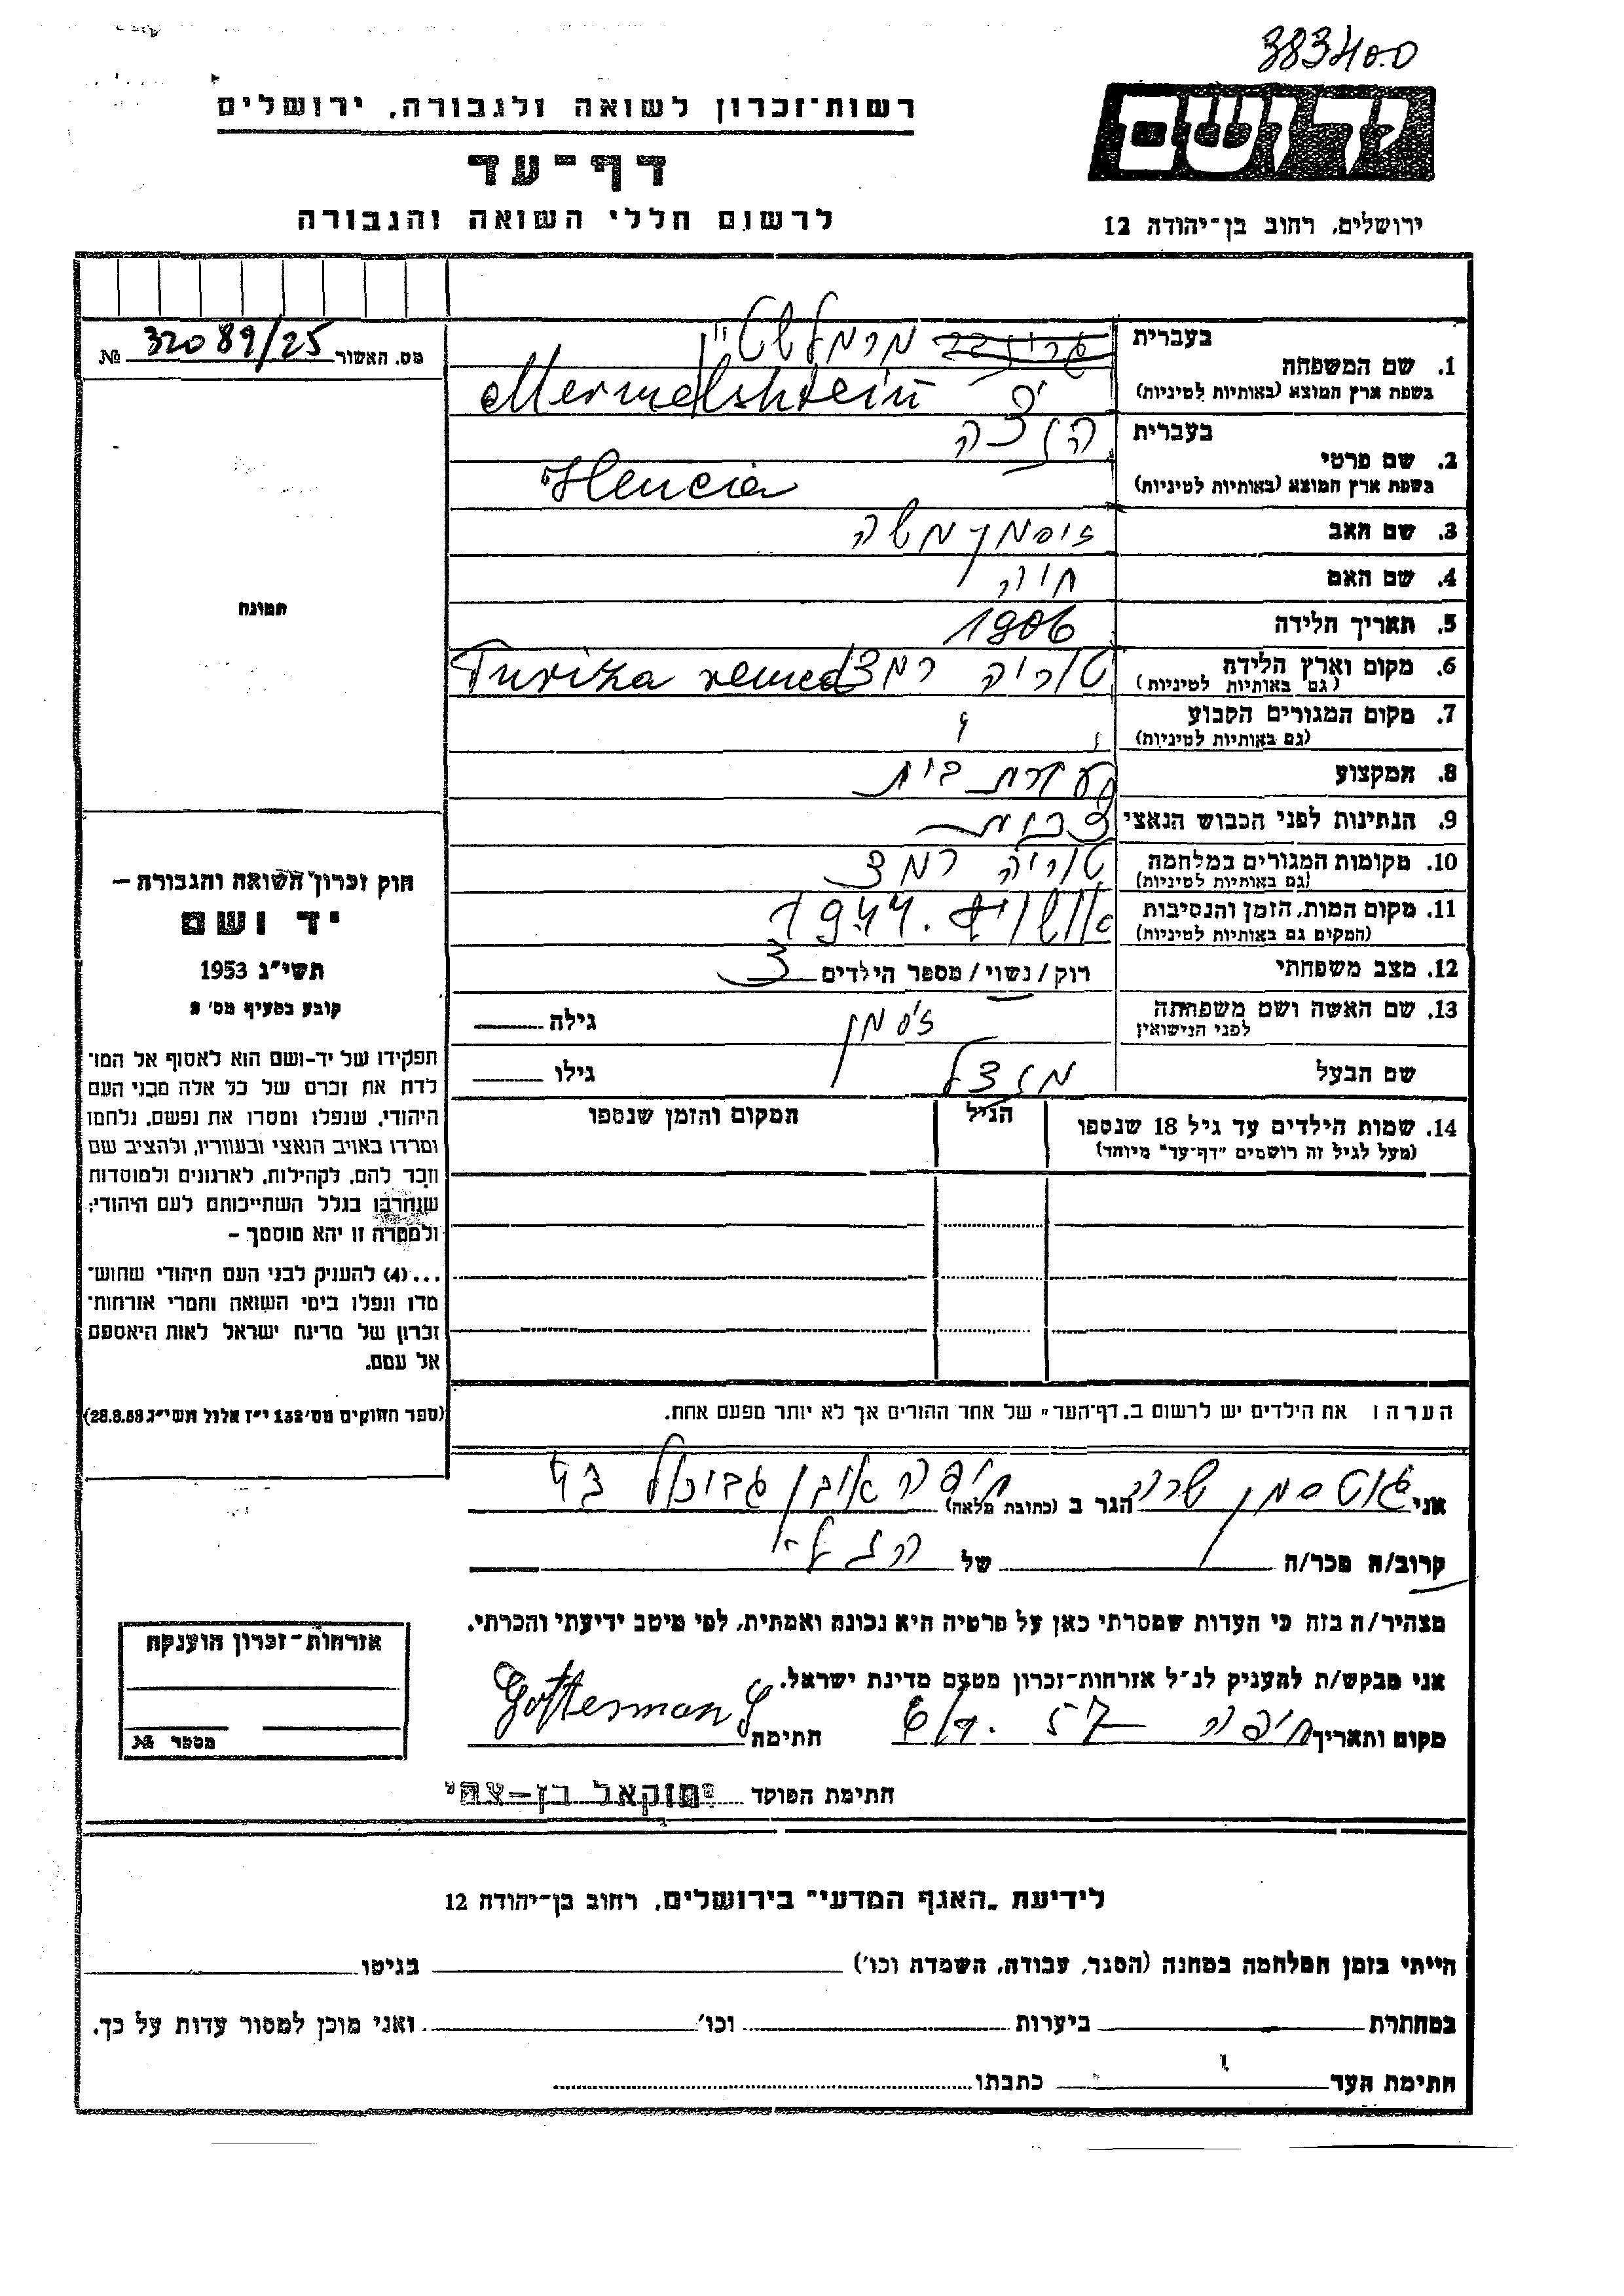 383400
רשות־זכרון לשואה ולגבורה, ירושלים
דף־עד
לרשום חללי השואה והגבורה
ירושלים, רחוב בן־יהודה 12
מס. האשור 32089/25 №
בעברית מרמלשטיין
1. שם המשפחה
בשפת ארץ המוצא (באותיות לטיניות) Mermelshtein
בעברית הנצה
2. שם פרטי
בשפת ארץ המוצא (באותיות לטיניות) Hencia
3. שם האב זיסמן משה
4. שם האם חיה
5. תאריך הלידה 1906
6. מקום וארץ הלידה טוריה רמצ Turiza remec
(גם באותיות לטיניות)
7. מקום המגורים הקבוע
(גם באותיות לטיניות)
8. המקצוע עקרת בית
9. הנתינות לפני הכבוש הנאצי
10. מקומות המגורים במלחמה טוריה רמצ
(גם באותיות לטיניות)
11. מקום המות, הזמן והנסיבות אושויץ. 1944
(המקום גם באותיות לטיניות)
12. מצב משפחתי רוק/נשוי/מספר הילדים 3
13. שם האשה ושם משפחתה זיסמן גילה
לפני הנישואין
שם הבעל מנדל גילו
14. שמות הילדים עד גיל 18 שנספו הגיל המקום והזמן שנספו
(מעל לגיל זה רושמים "דף־עד" מיוחד)
הערה: את הילדים יש לרשום ב„דף־העד" של אחד ההורים אך לא יותר מפעם אחת.
תמונה
חוק זכרון השואה והגבורה –
יד ושם
תשי"ג 1953
קובע בסעיף מס' 2
תפקידו של יד-ושם הוא לאסוף אל המו־
לדת את זכרם של כל אלה מבני העם
היהודי, שנפלו ומסרו את נפשם, נלחמו
ומרדו באויב הנאצי ובעוזריו, ולהציב שם
וזכר להם, לקהילות, לארגונים ולמוסדות
שנחרבו בגלל השתייכותם לעם היהודי;
ולמטרה זו יהא מוסמך –
...(4) להעניק לבני העם היהודי שהוש־
מדו ונפלו בימי השואה והמרי אזרחות־
זכרון של מדינת ישראל לאות היאספם
אל עמם.
(ספר החוקים מס' 132 י"ז אלול תשי"ג 28.8.53)
אני גוטסמן שרה הגר ב (כתובת מלאה) חיפה אבן גבירול 43
קרוב/ה מכר/ה של הנ"ל
מצהיר/ה בזה כי העדות שמסרתי כאן על פרטיה היא נכונה ואמתית, לפי מיטב ידיעתי והכרתי.
אני מבקש/ת להעניק לנ"ל אזרחות־זכרון מטעם מדינת ישראל.
מקום ותאריך חיפה 57 חתימה Gottesman S
חתימת הפוקד יחזקאל בן–צבי
אזרחות־זכרון הוענקה
מספר №
לידיעת „האגף המדעי" בירושלים, רחוב בן־יהודה 12
הייתי בזמן המלחמה במחנה (הסגר, עבודה, השמדה וכו') בגיטו
במחתרת ביערות וכו' ואני מוכן למסור עדות על כך.
חתימת העד כתבתו